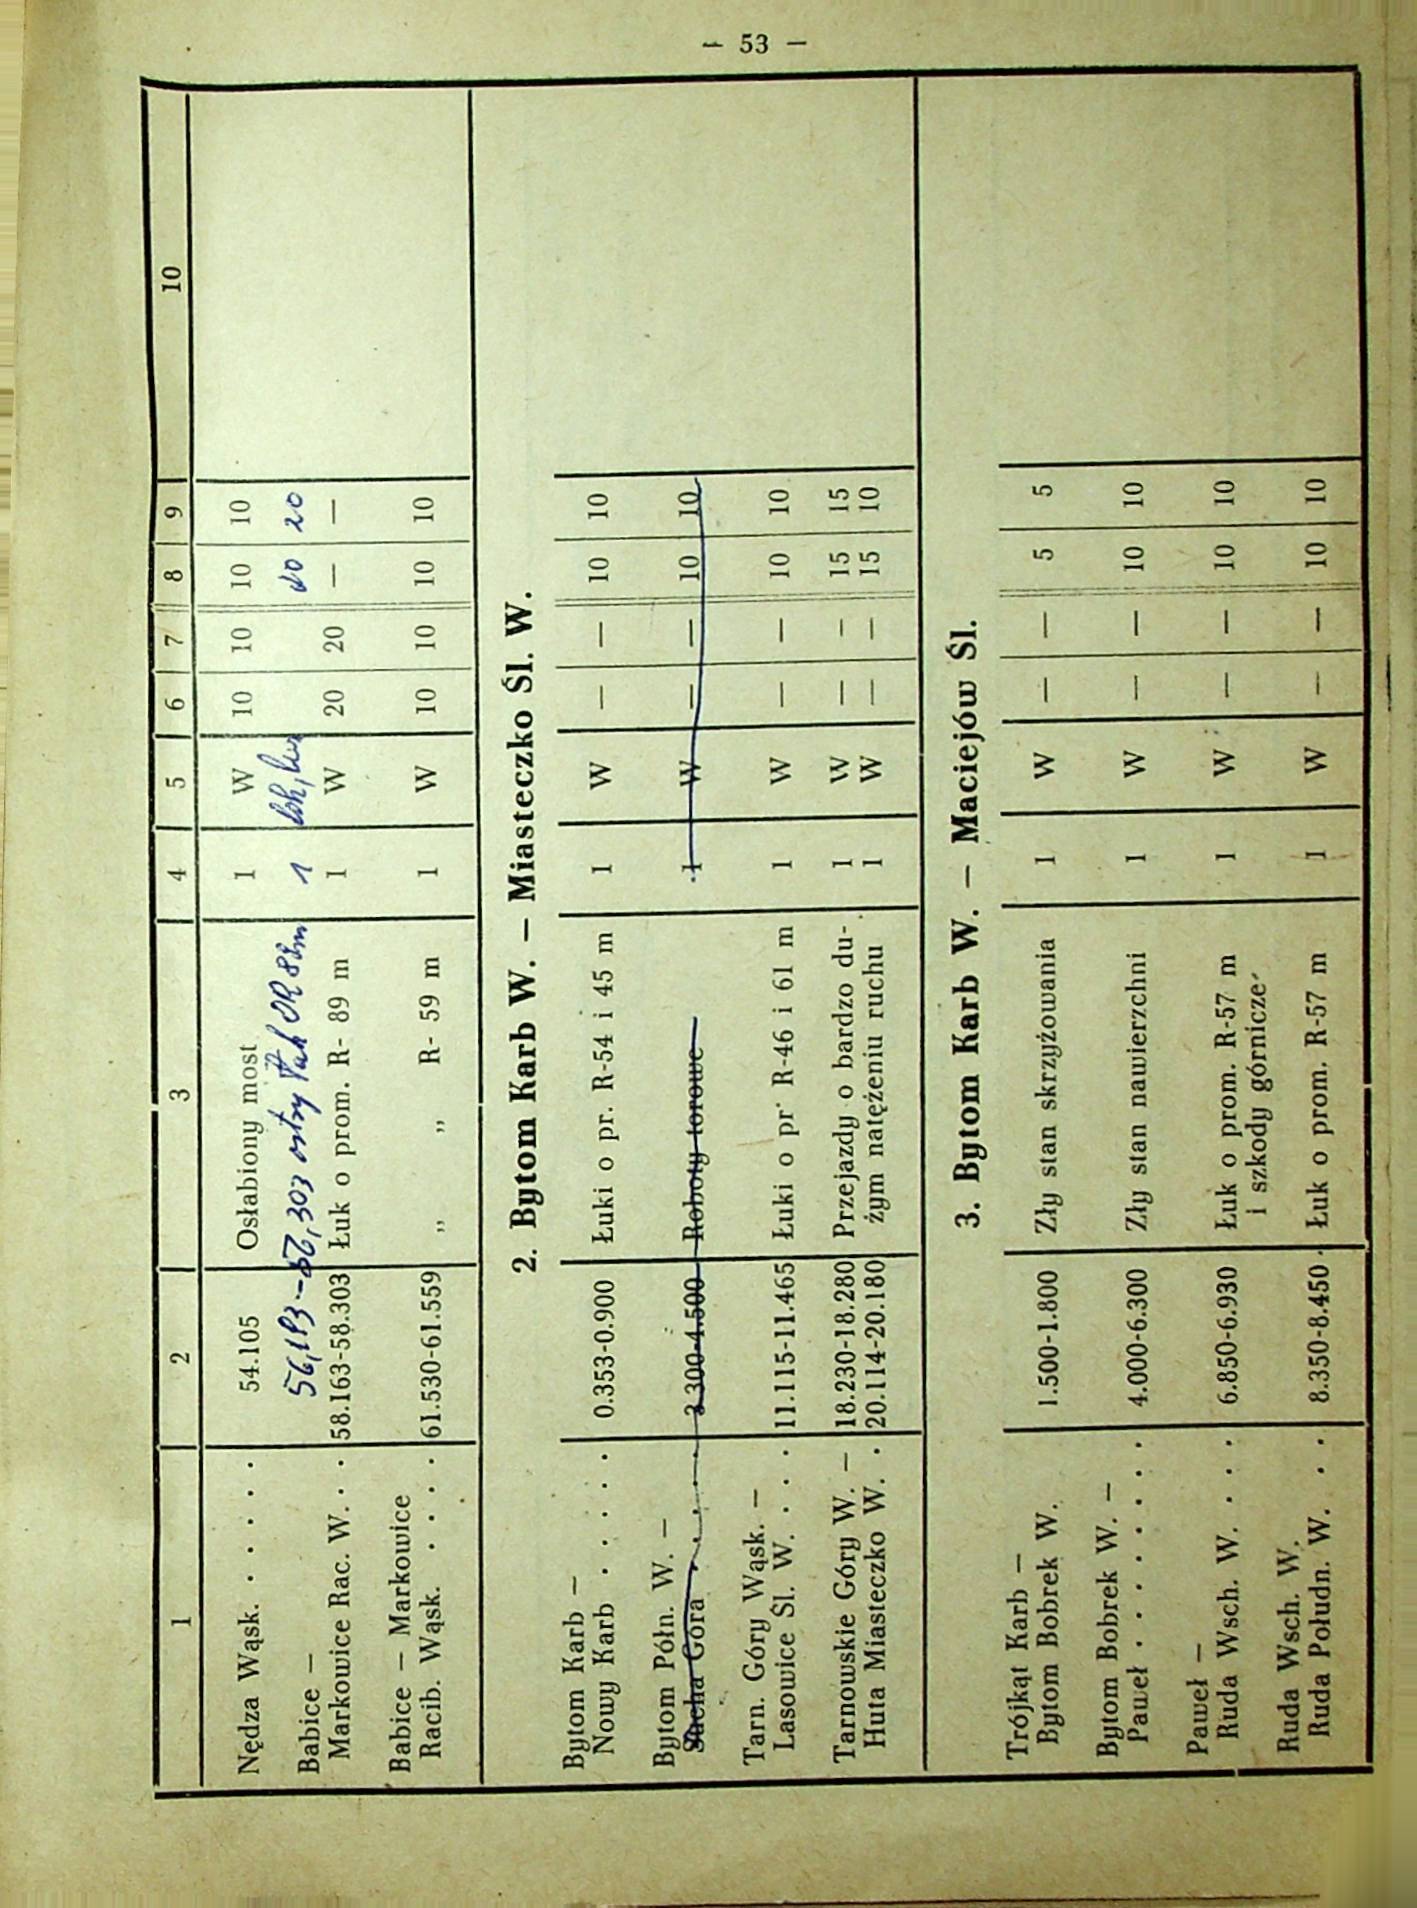 — 53 —
1 2 3 4 5 6 7 8 9 10
Nędza Wąsk. . . . . . 54.105 Osłabiony most 1 W 10 10 10 10
56,183 - 56,303 ostry łuk 1 20
Babice —
Markowice Rac. W. . . 58.163-58.303 Łuk o prom. R- 89 m 1 W 20 20 — —
Babice — Markowice
Racib. Wąsk. . . . . 61.530-61.559 „ „ R- 59 m 1 W 10 10 10 10
2. Bytom Karb W. — Miasteczko Śl. W.
Bytom Karb —
Nowy Karb . . . . . 0.353-0.900 Łuki o pr. R-54 i 45 m 1 W — — 10 10
Bytom Półn. W. —
Sucha Góra . . . . . 3.300-4.500 Roboty torowe 1 W — — 10 10
Tarn. Góry Wąsk. —
Lasowice Śl. W. . . . 11.115-11.465 Łuki o pr. R-46 i 61 m 1 W — — 10 10
Tarnowskie Góry W. — 18.230-18.280 Przejazdy o bardzo du- 1 W — — 15 15
Huta Miasteczko W. . 20.114-20.180 żym natężeniu ruchu 1 W — — 15 10
3. Bytom Karb W. — Maciejów Śl.
Trójkąt Karb —
Bytom Bobrek W. 1.500-1.800 Zły stan skrzyżowania 1 W — — 5 5
Bytom Bobrek W. —
Paweł . . . . . . . 4.000-6.300 Zły stan nawierzchni 1 W — — 10 10
Paweł —
Ruda Wsch. W. . . . 6.850-6.930 Łuk o prom. R-57 m 1 W — — 10 10
i szkody górnicze
Ruda Wsch. W.
Ruda Południ. W. . . 8.350-8.450 Łuk o prom. R-57 m 1 W — — 10 10